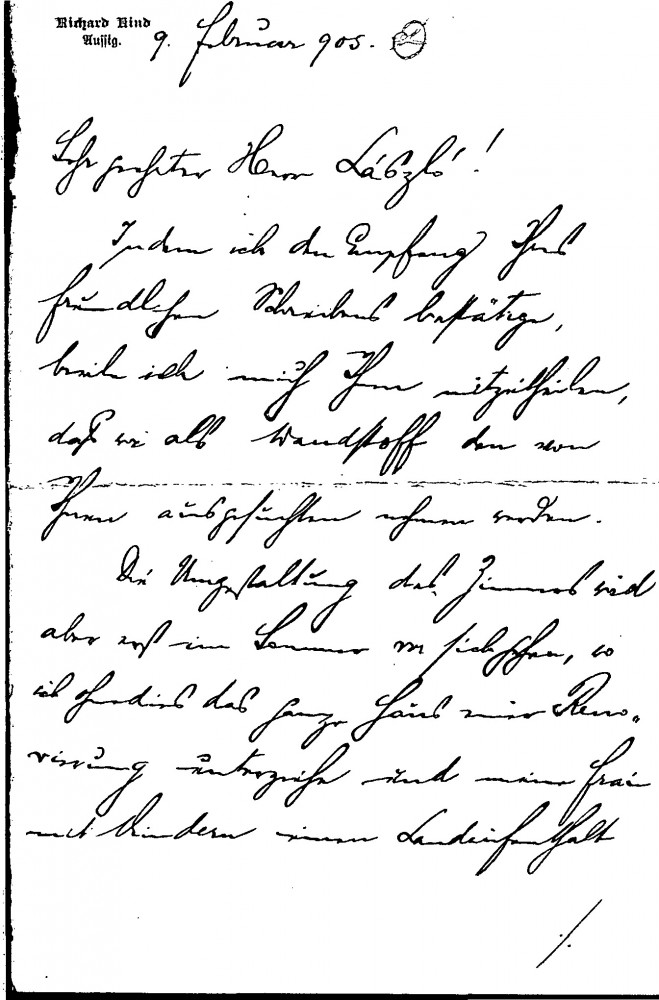 Richard Kind
Aussig.
9. Februar 905.
Sehr geehrter Herr László!
Indem ich den Empfang Ihres
freundlichen Schreibens bestätige,
beeile ich mich Ihnen mitzutheilen,
daß wir als Wandstoff den von
Ihnen ausgesuchten nehmen werden.
Die Umgestaltung des Zimmers wird
aber erst im Sommer vor sich gehen, wo
ich ohnedies das ganze Haus einer Reno-
vierung unterziehe und meine Frau
mit Kindern einen Landaufenthalt
./.